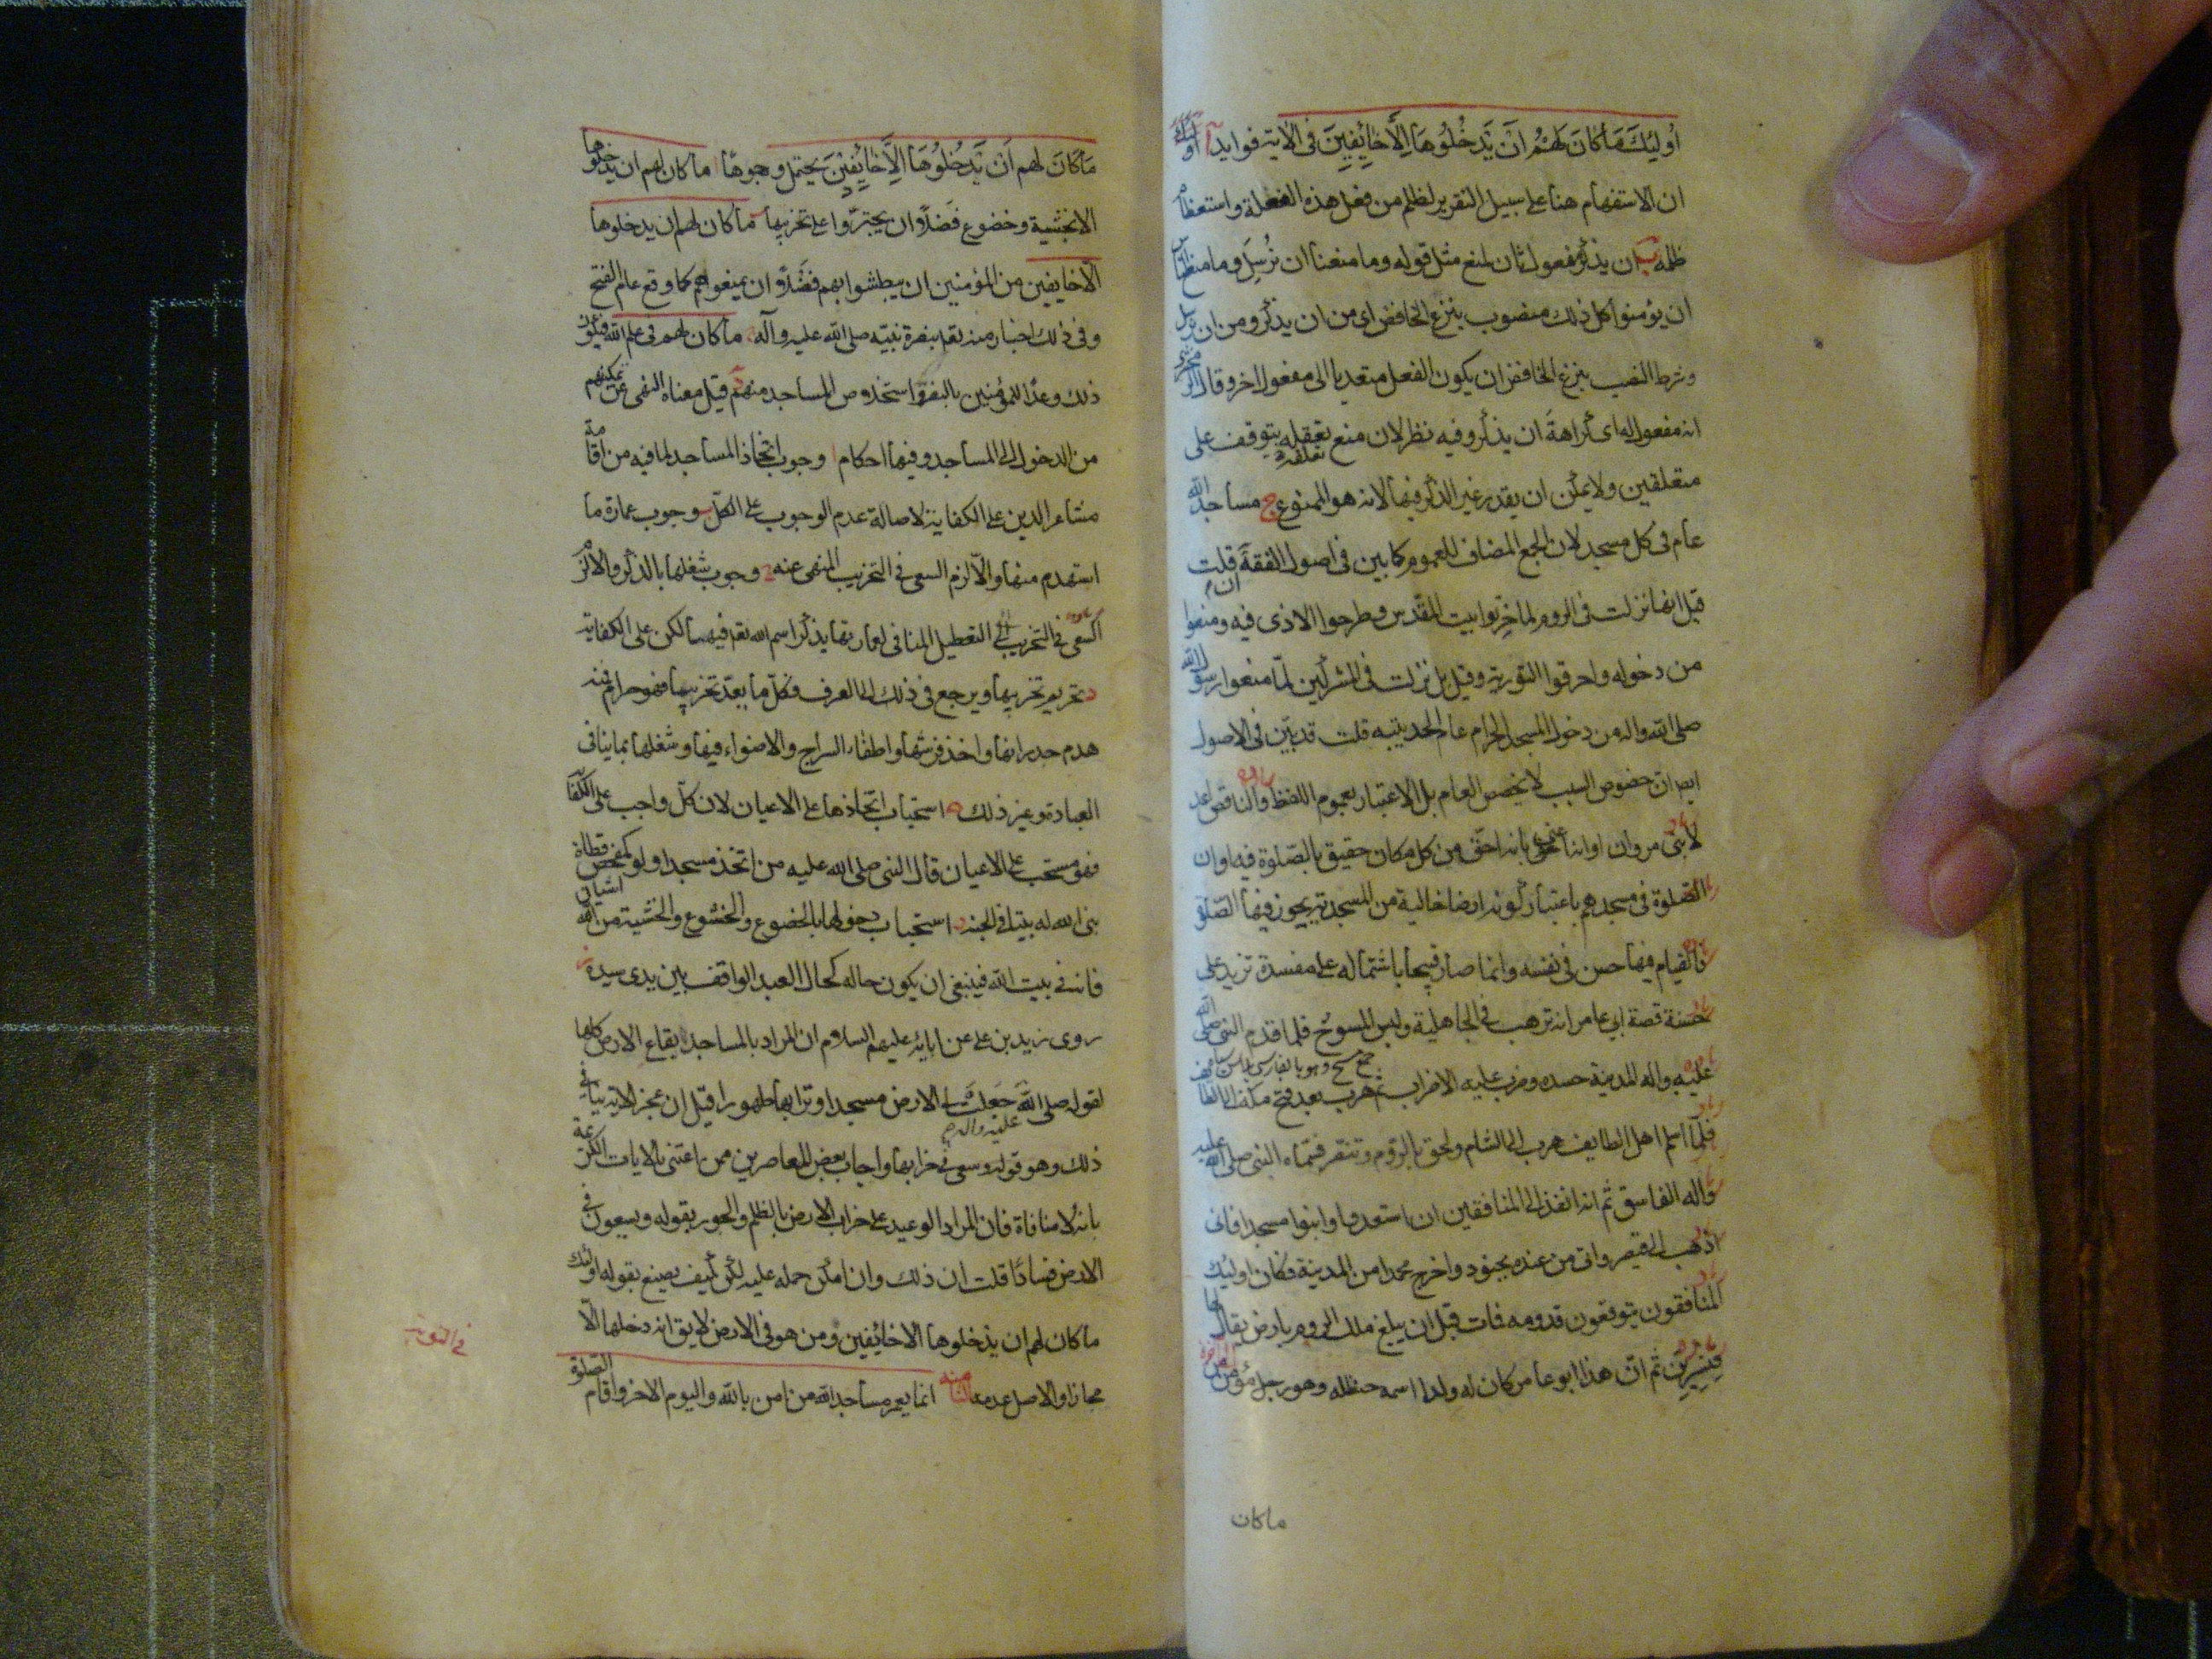 أُولئِكَ مَا كَانَ لَهُمْ أَنْ يَدْخُلُوهَا إِلَّا خَائِفِينَ فى الآية فوايد آ أولئك
ان الاستفهام هنا على سبيل التقرير لظلم من فعل هذه الفعلة واستعظام
ظلمه ب ان يذكر مفعول ثان لمنع مثل قوله وما منعنا ان نُرسِلَ وما منع الناس
ان يؤمنوا كل ذلك منصوب بنزع الخافض اى من ان يذكر ومن ان نرسل
وشرط النصب بنزع الخافض ان يكون الفعل متعديا الى مفعول اخر وقال الزمخشرى
انه مفعول له اى كراهةَ ان يذكر وفيه نظر لان منع تعقله يتوقف على
متعلقين ولا يمكن ان يقدر غير الذكر فيها لانه هو الممنوع ج مساجد الله
عام فى كل مسجد لان الجمع المضاف للعموم كما بين فى اصول الفقه قلت
قيل انها نزلت فى الروم لما خربوا بيت المقدس وطرحوا الاذى فيه ومنعوا
من دخوله واحرقوا التورية وقيل بل نزلت فى المشركين لمّا منعوا رسول الله
صلى الله واله من دخول المسجد الحرام عام الحديبيه قلت قد بيّن فى الاصول
ايضا ان خصوص السبب لا يخصص العام بل الاعتبار بعموم اللفظ والناقص اعد
لابنى مروان او انه بانه احق من كل مكان حقيق بالصلوة فيه او ان
الصلوة فى مسجدهم باعتبار كونه ارضا خالية من المسجدية يجوز فيها الصلوة
والقيام فيها حسن فى نفسه وانما صار قبيحا باشتماله على مفسدة تزيد على
حسنة قصة ابى عامر انه ترهب فى الجاهلية ولبس المسوح فلما قدم النبى صلى الله
عليه واله المدينة حسده وحزب عليه الاحزاب ثم هرب بعد فتح مكة الى الطائف
فلمّا اسلم اهل الطايف هرب الى الشام ولحق بالروم وتنصر فسمّاه النبى صلى الله عليه
واله الفاسق ثم انه انفذ الى المنافقين ان استعدوا وابنوا مسجدا فانى
اذهب الى قيصر واتى من عنده بجنود واخرج محمدا من المدينة فكان اوليك
المنافقون يتوقعون قدومه فمات قبل ان يبلغ ملك الروم بارض يقال لها
قِنسِرين ثم انّ هذا ابو عامر كان له ولدا اسمه حنظله وهو رجل مؤمن
ماكان
مَا كَانَ لهم أَنْ يَدْخُلُوهَا إِلَّا خَائِفِينَ يحتمل وجوهًا ا ما كان لهم ان يدخلوها
الا بخشية وخضوع فَضلًا ان يجترّوا على تخريبها ما كان لهم ان يدخلوها
الّا خايفين من المؤمنين ان يبطشوا بهم فَضلًا ان يمنعوهم كما وقع عام الفتح
وفى ذلك اخبار منه تعالى بنصرة نبيّه صلى الله عليه وآله ما كان لهم فى علم الله فيكون
ذلك وعدًا للمؤمنين بالنصرة واستخلاص المساجد منهم قيل معناه النهى عن تمكينهم
من الدخول الى المساجد وفيها احكام ا وجوب اتخاذ المساجد لما فيه من اقامة
مشاعر الدين على الكفاية لاصالة عدم الوجوب على الكل ب وجوب عمارة ما
استهدم منها والّا لزم السعى فى التخريب المنهى عنه وجوب شغلها بالذكر والا لزم
السعى فى التخريب اى التعطيل المنافى لعمارتها بذكر اسم الله تعالى فيها لكن على الكفاية
د تحريم تخريبها ويرجع فى ذلك الى العرف فكلّ ما يعدّ تخريبها فهو حرام فمنه
هدم جدرانها واخذ فرشها واطفاء السراج والاضواء فيها وشغلها بما ينافى
العبادة وغير ذلك ه استحباب اتخاذها على الاعيان لان كلّ واجب على الكفاية
فهو مستحب على الاعيان قال النبى صلى الله عليه من اتخذ مسجدا ولو كمفحص قطاة
بنى الله له بيتا فى الجنة و استحباب دخولها بالخضوع والخشوع والخشية من الله
فانه فى بيت الله فينبغى ان يكون حاله كحال العبد الواقف بين يدى سيده
روى زيد بن على عن آبائه عليهم السلام ان المراد بالمساجد بقاع الارض كلها
لقوله صلى الله عليه واله جعلت لى الارض مسجدا وترابها طهورا قيل ان عجز الاية ينافى
ذلك وهو قوله وسعى فى خرابها واجاب بعض المعاصرين ممن اعتنى بالايات الكريمة
بانه لا منافاة فان المراد الوعيد على خراب الارض بالظلم والجور بقوله ويسعون فى
الارض فسادًا قلت ان ذلك وان امكن حمله عليه لكن كيف يصنع بقوله اولئك
ما كان لهم ان يدخلوها الا خائفين ومن هو فى الارض لا يق انه دخلها الّا
مجازا والاصل عدمه انما يعمر مساجد الله من امن بالله واليوم الاخر واقام الصلوة
فى التوبة